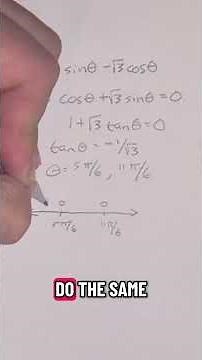 sinθ - √3 cosθ
cosθ + √3 sinθ = 0
1 + √3 tanθ = 0
tanθ = -1/√3
θ = 5π/6, 11π/6
0 0
5π/6 11π/6
DO THE SAME